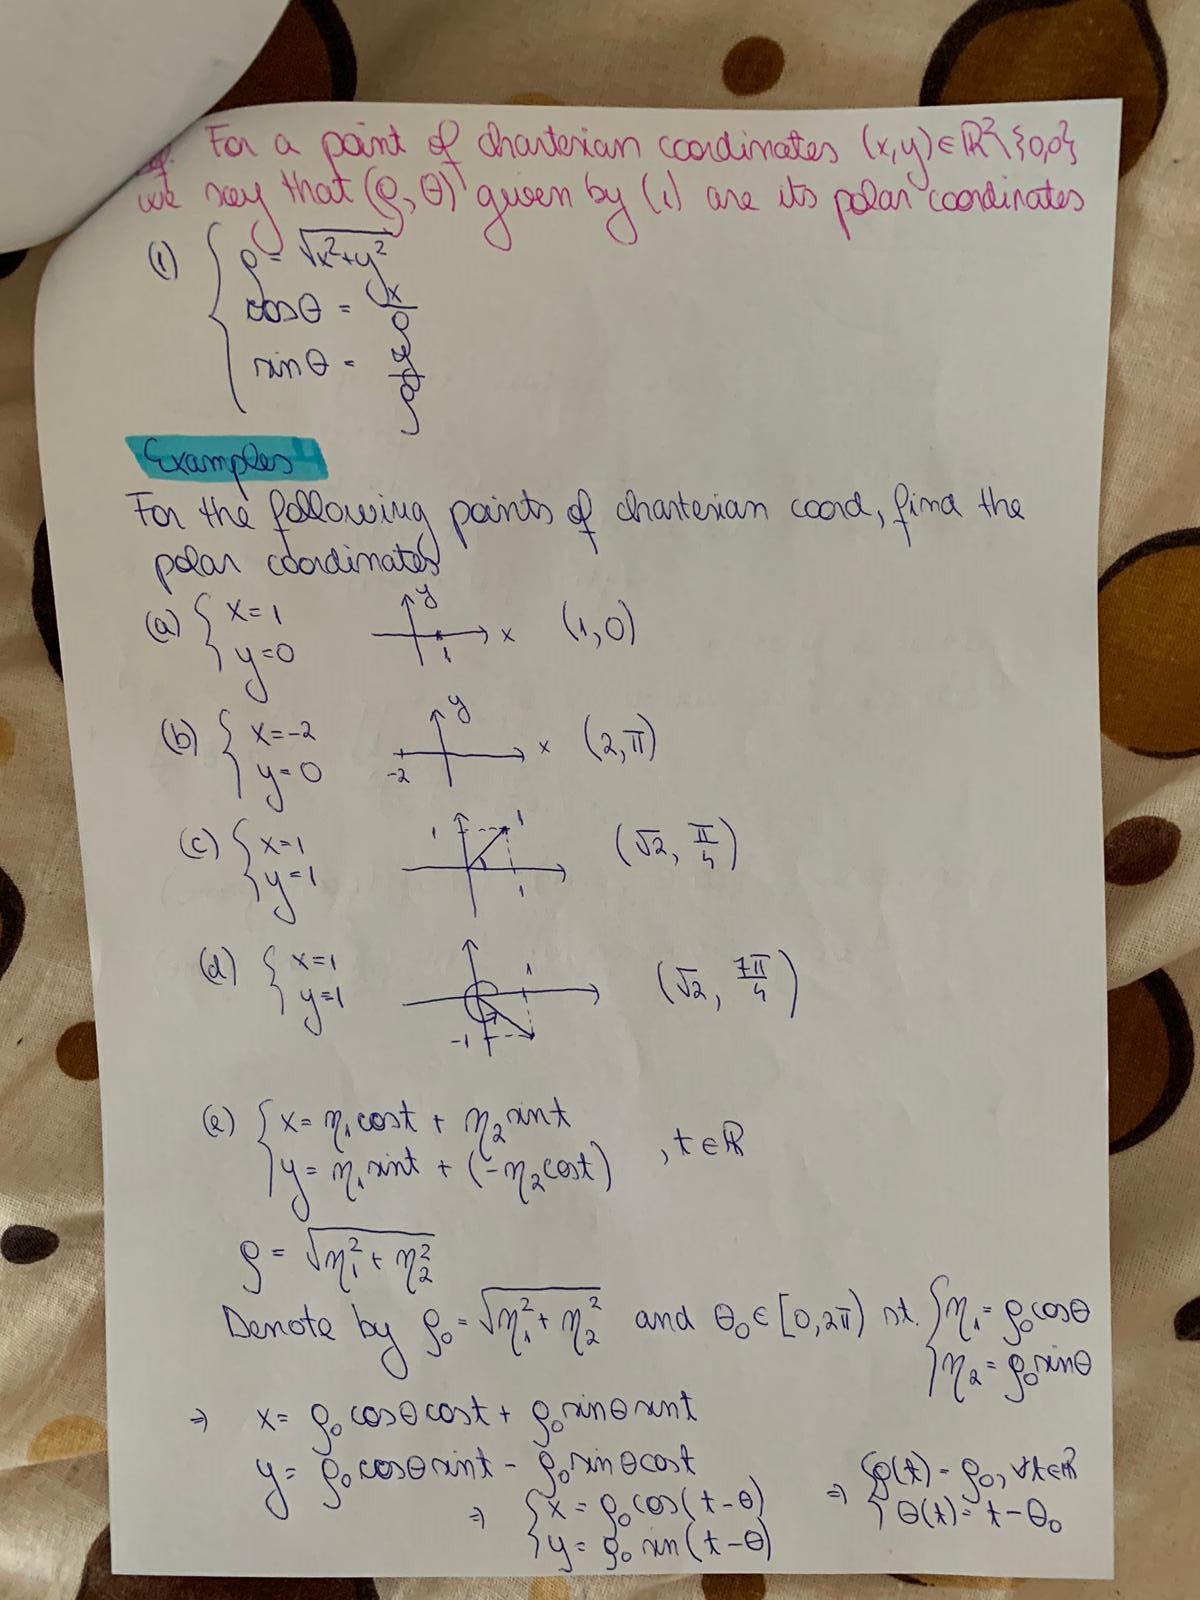 For a point of charterian coordinates (x,y)∈ℝ²\{0,0}
we say that (ρ,θ) given by (1) are its polar coordinates
(1) { ρ = √x²+y²
cosθ = x/ρ
sinθ = y/ρ
Examples
For the following points of charterian coord, find the
polar coordinates
(a) { x=1
y=0
y
x
1
(1,0)
(b) { x=-2
y=0
y
x
-2
(2,π)
(c) { x=1
y=1
1
1
1
(√2, π/4)
(d) { x=1
y=1
1
-1
(√2, 7π/4)
(e) { x= η₁cost + η₂sint
y= η₁sint + (-η₂cost) , t∈ℝ
ρ = √η₁²+η₂²
Denote by ρ₀=√η₁²+η₂² and θ₀∈[0,2π) st. { η₁=ρ₀cosθ
η₂=ρ₀sinθ
⇒ x= ρ₀cosθcost + ρ₀sinθsint
y= ρ₀cosθsint - ρ₀sinθcost
⇒ { x=ρ₀cos(t-θ)
y=ρ₀sin(t-θ)
⇒ { ρ(t)=ρ₀, ∀t∈ℝ
θ(t)=t-θ₀